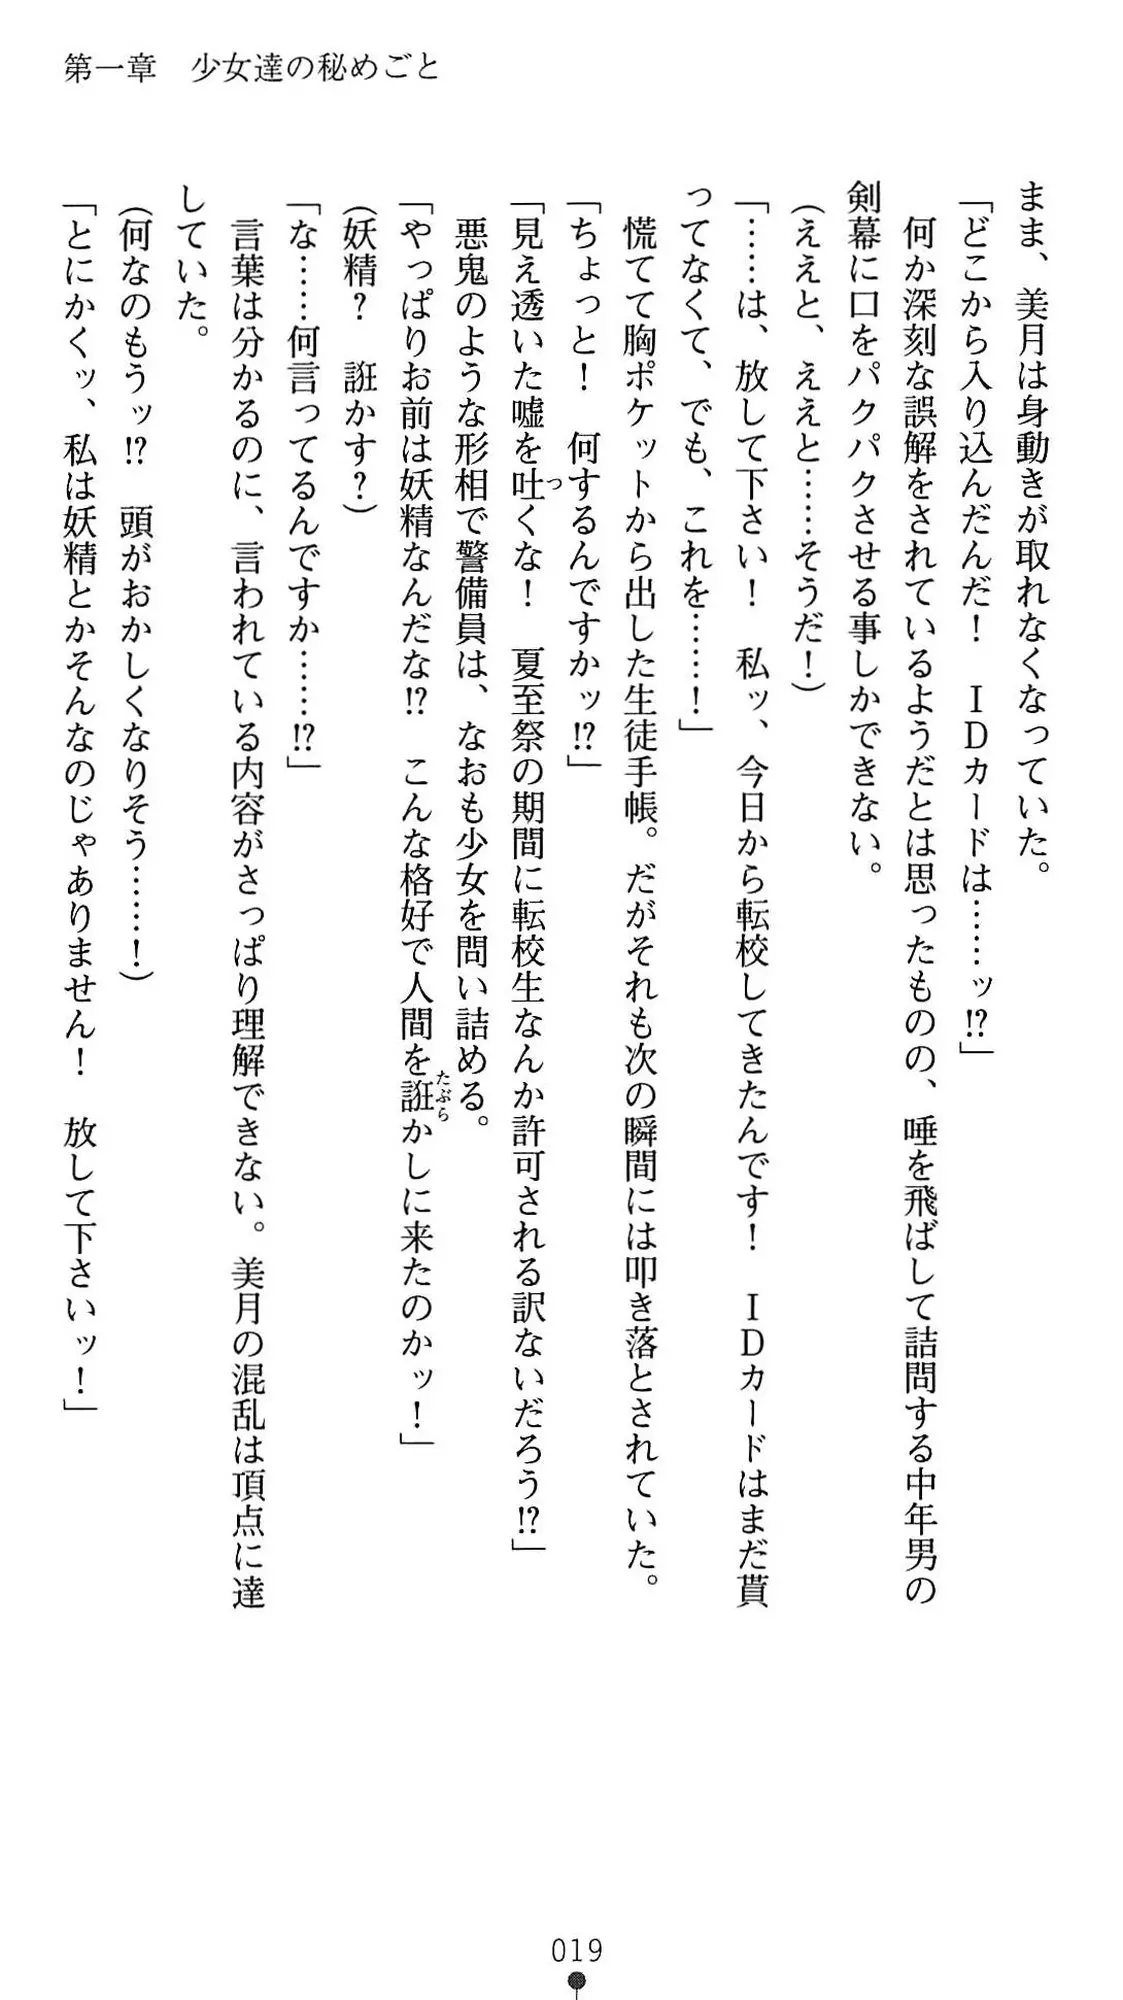 第一章　少女達の秘めごと
まま、美月は身動きが取れなくなっていた。
「どこから入り込んだんだ！　ＩＤカードは……ッ!?」
　何か深刻な誤解をされているようだとは思ったものの、唾を飛ばして詰問する中年男の
剣幕に口をパクパクさせる事しかできない。
（ええと、ええと……そうだ！）
「……は、放して下さい！　私ッ、今日から転校してきたんです！　ＩＤカードはまだ貰
ってなくて、でも、これを……！」
　慌てて胸ポケットから出した生徒手帳。だがそれも次の瞬間には叩き落とされていた。
「ちょっと！　何するんですかッ!?」
「見え透いた嘘を吐くな！　夏至祭の期間に転校生なんか許可される訳ないだろう!?」
つ
　悪鬼のような形相で警備員は、なおも少女を問い詰める。
「やっぱりお前は妖精なんだな!?　こんな格好で人間を誑かしに来たのかッ！」
たぶら
（妖精？　誑かす？）
「な……何言ってるんですか……!?」
　言葉は分かるのに、言われている内容がさっぱり理解できない。美月の混乱は頂点に達
していた。
（何なのもうッ!?　頭がおかしくなりそう……！）
「とにかくッ、私は妖精とかそんなのじゃありません！　放して下さいッ！」
019